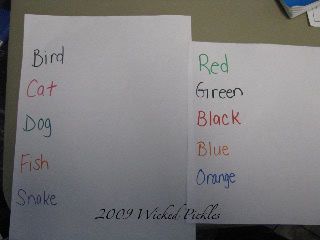 Bird
Cat
Dog
Fish
Snake
Red
Green
Black
Blue
Orange
2009 Wicked Pickles